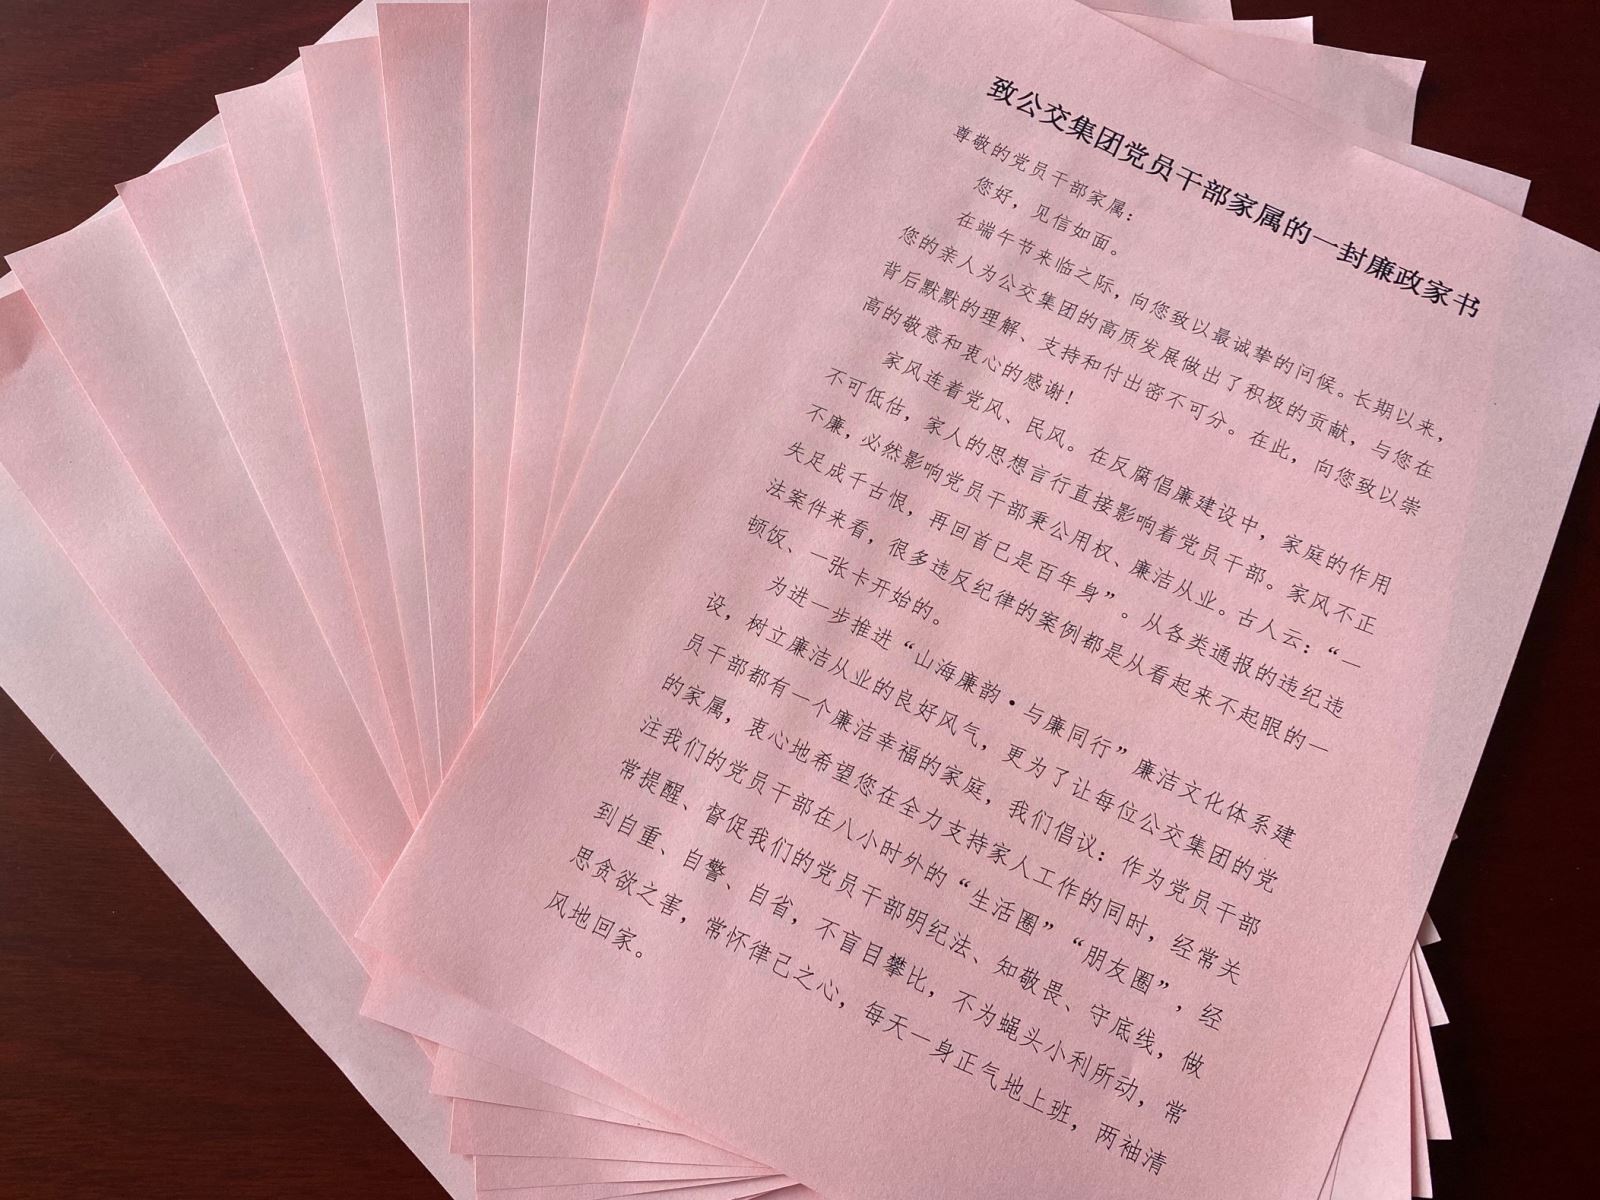 致公交集团党员干部家属的一封廉政家书
尊敬的党员干部家属：
您好，见信如面。
在端午节来临之际，向您致以最诚挚的问候。长期以来，
您的亲人为公交集团的高质发展做出了积极的贡献，与您在
背后默默的理解、支持和付出密不可分。在此，向您致以崇
高的敬意和衷心的感谢！
家风连着党风、民风。在反腐倡廉建设中，家庭的作用
不可低估，家人的思想言行直接影响着党员干部。家风不正
不廉，必然影响党员干部秉公用权、廉洁从业。古人云：“一
失足成千古恨，再回首已是百年身”。从各类通报的违纪违
法案件来看，很多违反纪律的案例都是从看起来不起眼的一
顿饭、一张卡开始的。
为进一步推进“山海廉韵·与廉同行”廉洁文化体系建
设，树立廉洁从业的良好风气，更为了让每位公交集团的党
员干部都有一个廉洁幸福的家庭，我们倡议：作为党员干部
的家属，衷心地希望您在全力支持家人工作的同时，经常关
注我们的党员干部在八小时外的“生活圈”“朋友圈”，经
常提醒、督促我们的党员干部明纪法、知敬畏、守底线，做
到自重、自警、自省，不盲目攀比，不为蝇头小利所动，常
思贪欲之害，常怀律己之心，每天一身正气地上班，两袖清
风地回家。